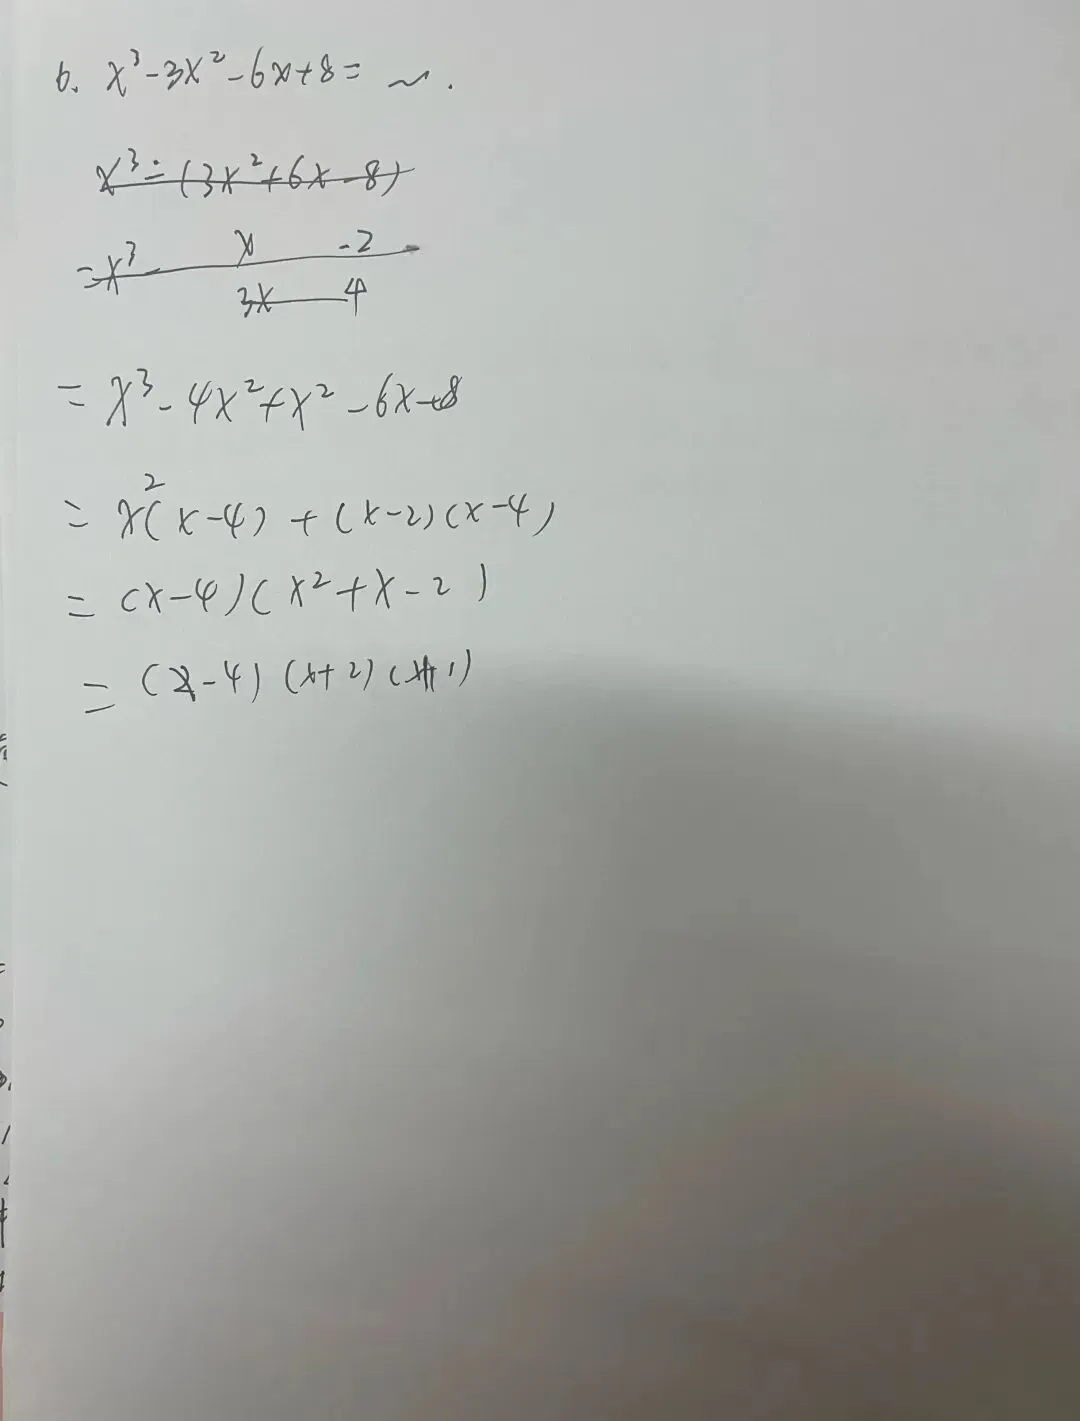 6. x³-3x²-6x+8= ~.
x³-(3x²+6x-8)
=x³- x -2
3x 4
= x³-4x²+x²-6x+8
= x²(x-4)+(x-2)(x-4)
= (x-4)(x²+x-2)
= (x-4)(x+2)